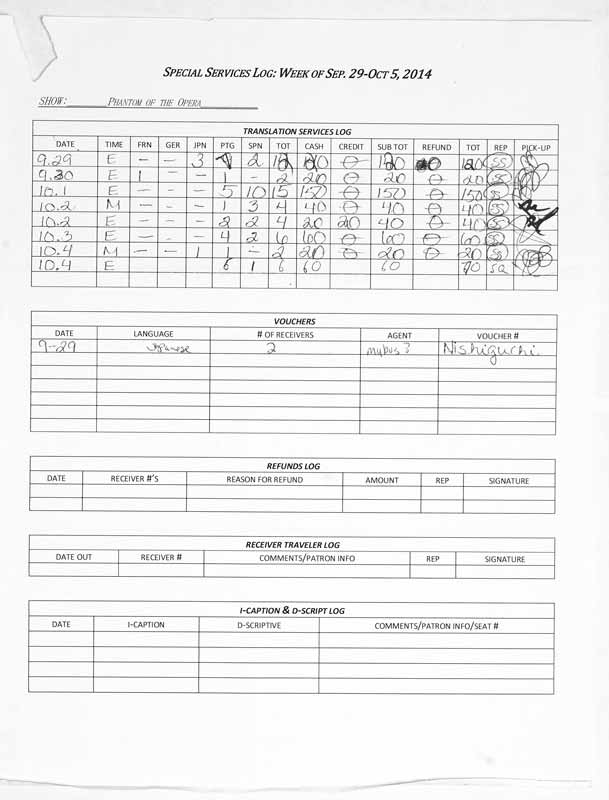 SPECIAL SERVICES LOG: WEEK OF SEP. 29-OCT 5, 2014
SHOW: PHANTOM OF THE OPERA
TRANSLATION SERVICES LOG
DATE TIME FRN GER JPN PTG SPN TOT CASH CREDIT SUB TOT REFUND TOT REP PICK-UP
9.29 E - - 3 2 120 0 120 120 SS
9.30 E 1 - - 1 - 2 20 0 20 0 20 SS
10.1 E - - - 5 10 15 150 0 150 0 150 SS
10.2 M - - - 1 3 4 40 0 40 0 40 SS
10.2 E - - - 2 2 4 20 20 40 0 40 SS
10.3 E - - - 4 2 6 60 0 60 0 60 SS
10.4 M - - 1 1 - 2 20 0 20 0 20 SS
10.4 E 6 1 6 60 60 70 sa
VOUCHERS
DATE LANGUAGE # OF RECEIVERS AGENT VOUCHER #
9-29 Japanese 2 mybus? Nishiguchi
REFUNDS LOG
DATE RECEIVER #'S REASON FOR REFUND AMOUNT REP SIGNATURE
RECEIVER TRAVELER LOG
DATE OUT RECEIVER # COMMENTS/PATRON INFO REP SIGNATURE
I-CAPTION & D-SCRIPT LOG
DATE I-CAPTION D-SCRIPTIVE COMMENTS/PATRON INFO/SEAT #